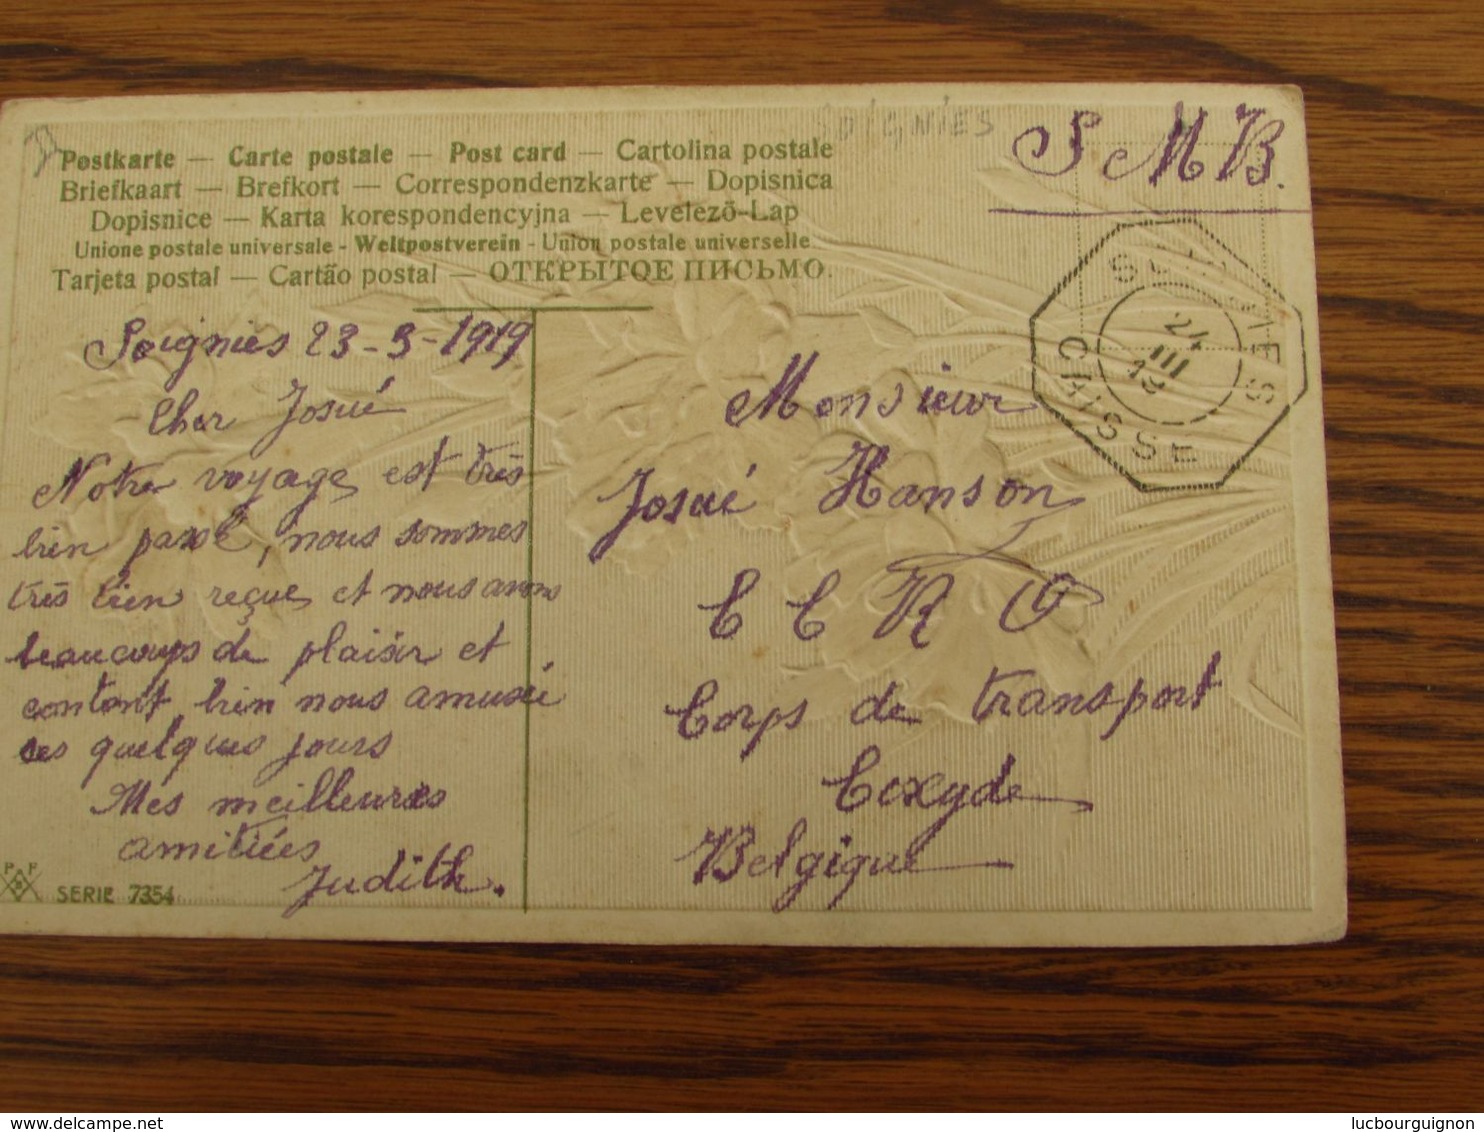 SOIGNIES
S M B.
Postkarte — Carte postale — Post card — Cartolina postale
Briefkaart — Brefkort — Correspondenzkarte — Dopisnica
Dopisnice — Karta korespondencyjna — Levelezõ-Lap
Unione postale universale - Weltpostverein - Union postale universelle
Tarjeta postal — Cartão postal — ОТКРЫТОЕ ПИСЬМО.
SOIGNIES
24
III
19
CAISSE
Soignies 23-3-1919
Cher Josué
Notre voyage est très
bien passé, nous sommes
très bien reçue et nous avons
beaucoups de plaisir et
contont bien nous amusé
ses quelques jours
Mes meilleures
amitiées
Judith.
Monsieur
Josué Hanson
C C R
Corps de transport
Coxyde
Belgique
P F
SERIE 7354
delcampe.net
lucbourguignon